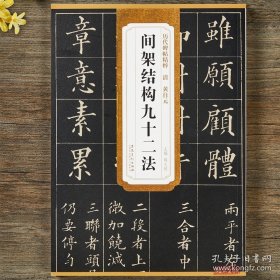 历代碑帖精粹 清 黄自元
间架结构九十二法
雖願顧體
章意素累
兩平者
三合者中
二段者上
微加饒減
三聯者頭
仍要停勻
孔夫子旧书网